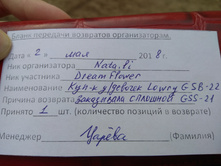 Бланк передачи возвратов организаторам.
Дата « 2 » мая 2018 г.
Ник организатора Nata.li
Ник участника DreamFlower
Наименование Куп-к д/девочек Lowry GSB-22
Причина возврата Заказывала сплошной GSS-21
Принято 1 шт. (количество позиций в возврате)
Менеджер Царёва (Фамилия)